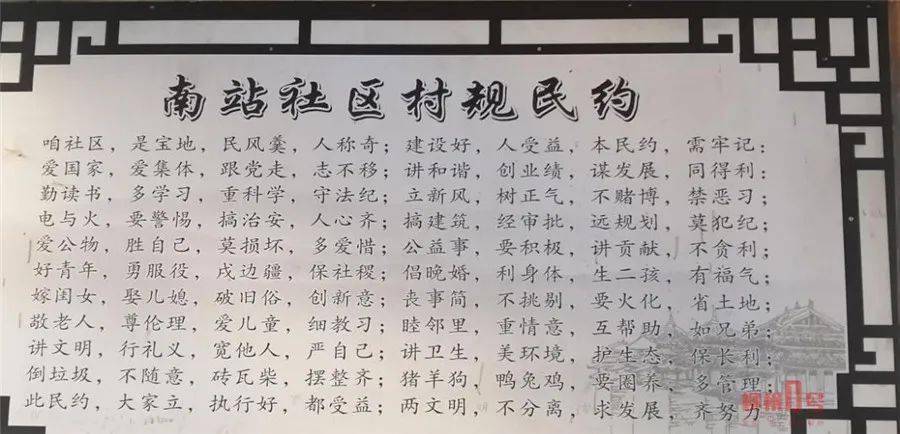 南站社区村规民约
咱社区，是宝地，民风羹，人称奇；建设好，人受益，本民约，需牢记：
爱国家，爱集体，跟党走，志不移；讲和谐，创业绩，谋发展，同得利；
勤读书，多学习，重科学，守法纪；立新风，树正气，不赌博，禁恶习；
电与火，要警惕，搞治安，人心齐；搞建筑，经审批，远规划，莫犯纪；
爱公物，胜自己，莫损坏，多爱惜；公益事，要积极，讲贡献，不贪利；
好青年，勇服役，戍边疆，保社稷；倡晚婚，利身体，生二孩，有福气；
嫁闺女，娶儿媳，破旧俗，创新意；丧事简，不挑剔，要火化，省土地；
敬老人，尊伦理，爱儿童，细教习；睦邻里，重情意，互帮助，如兄弟；
讲文明，行礼义，宽他人，严自己；讲卫生，美环境，护生态，保长利；
倒垃圾，不随意，砖瓦柴，摆整齐；猪羊狗，鸭兔鸡，要圈养，多管理；
此民约，大家立，执行好，都受益；两文明，不分离，求发展，齐努力